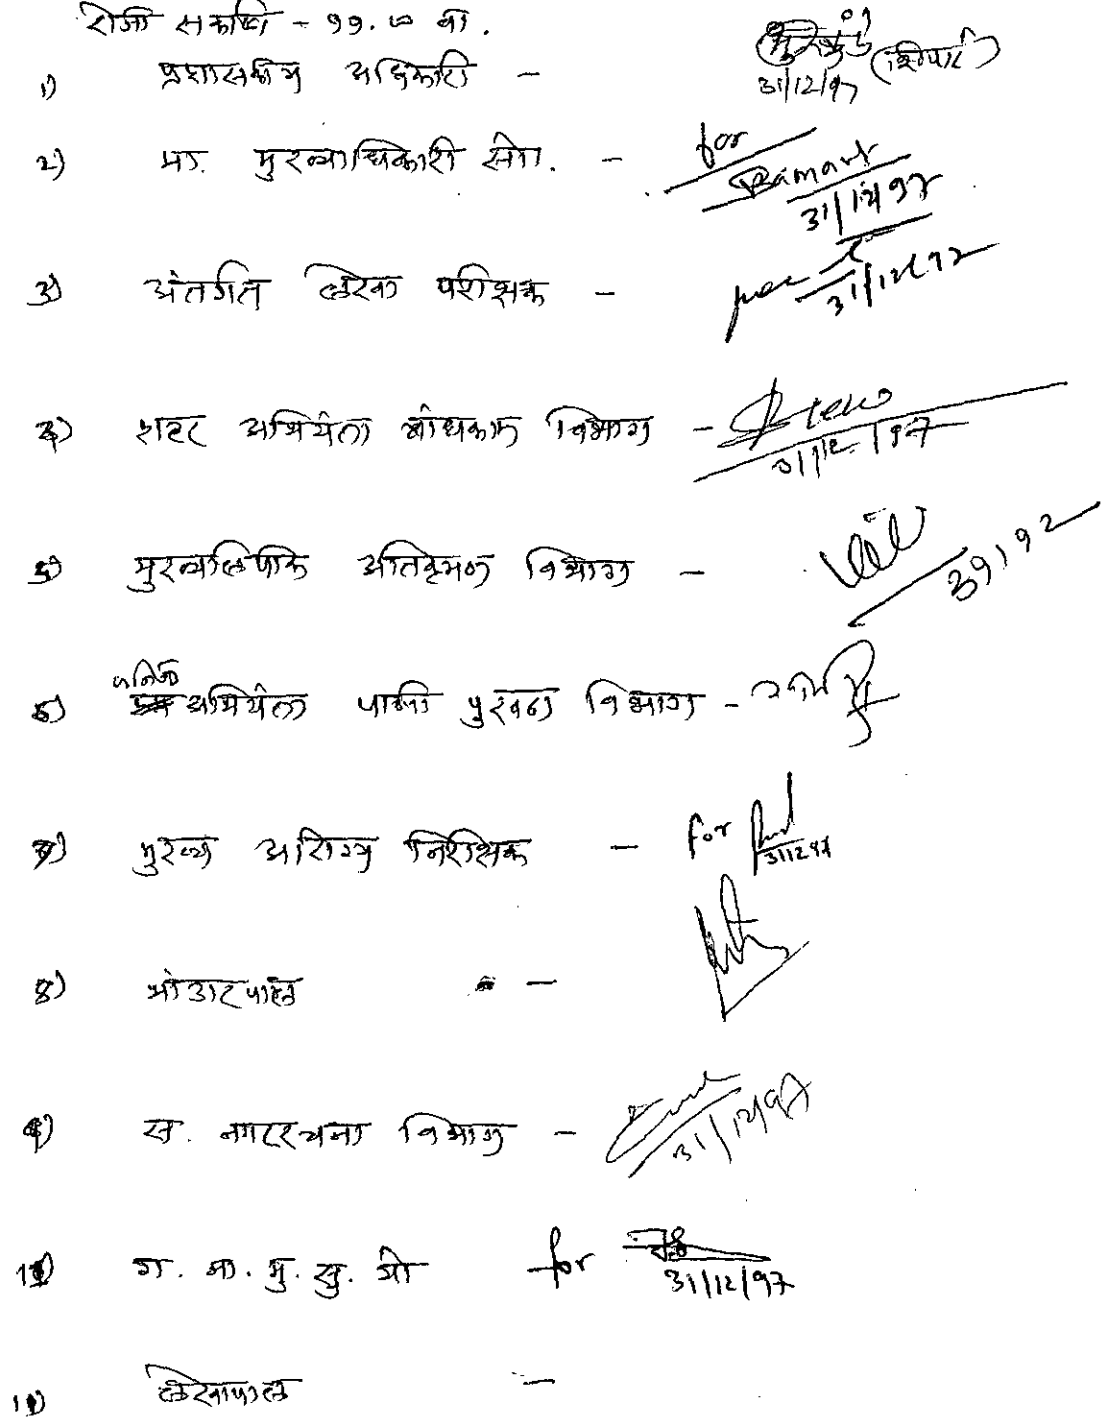 रोजी सकाळी - ११.०० वा.
१) प्रशासकीय अधिकारी - 31/12/97
२) मा. मुख्याधिकारी सो. - for 31/12/97
३) अंतर्गत लेखा परीक्षक - 31/12/92
४) शहर अभियंता बांधकाम विभाग - 31/12/97
५) मुख्यलिपीक अतिक्रमण विभाग -
६) कनिष्ठ अभियंता पाणी पुरवठा विभाग -
७) मुख्य आरोग्य निरीक्षक - for 311297
८) भांडारपाल -
९) स. नगररचना विभाग - 31/12/97
१०) ग. व. मु. सु. यो for 31/12/97
११) लेखापाल -